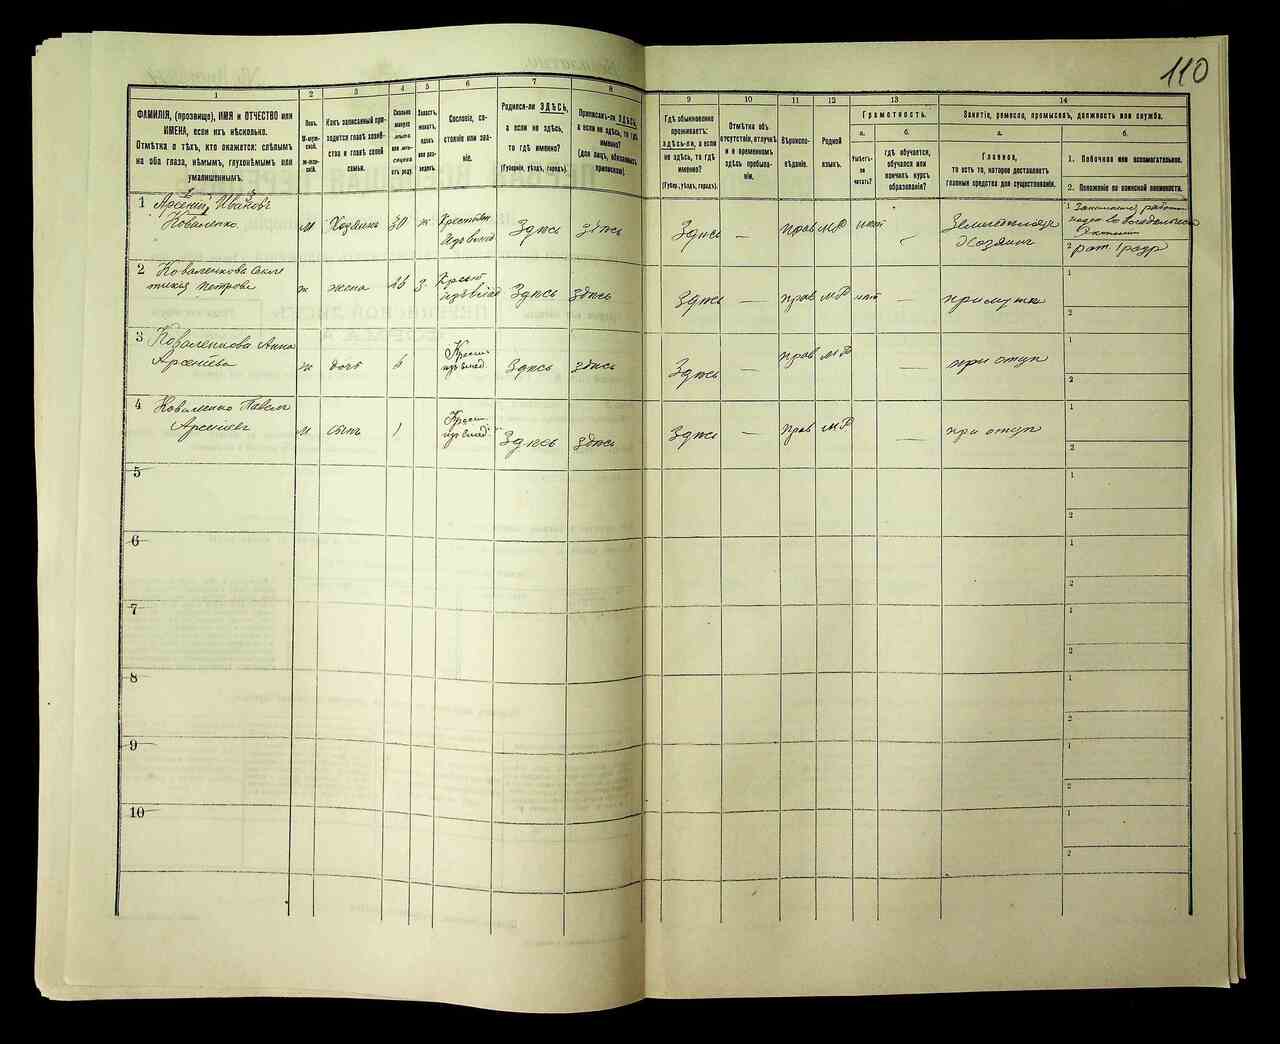 110
1
2
3
4
5
6
7
8
9
10
11
12
13
14
ФАМИЛІЯ, (прозвище), ИМЯ и ОТЧЕСТВО или
ИМЕНА, если ихъ нѣсколько.
Отмѣтка о тѣхъ, кто окажется: слѣпымъ
на оба глаза, нѣмымъ, глухонѣмымъ или
умалишеннымъ.
Полъ.
М-муж-
ской.
Ж-жен-
скій.
Какъ записанный при-
ходится главѣ хозяй-
ства и главѣ своей
семьи.
Сколько
минуло
лѣтъ
или мѣ-
сяцевъ
отъ роду.
Холостъ,
женатъ,
вдовъ
или раз-
веденъ.
Сословіе, со-
стояніе или зва-
ніе.
Родился-ли ЗДѢСЬ,
а если не здѣсь,
то гдѣ именно?
(Губернія, уѣздъ, городъ).
Приписанъ-ли ЗДѢСЬ,
а если не здѣсь, то гдѣ
именно?
(для лицъ, обязанныхъ
припискою).
Гдѣ обыкновенно
проживаетъ:
здѣсь-ли, а если
не здѣсь, то гдѣ
именно?
(Губер., уѣздъ, городъ).
Отмѣтка объ
отсутствіи, отлучкѣ
и о временномъ
здѣсь пребыва-
ніи.
Вѣроиспо-
вѣданіе.
Родной
языкъ.
Грамотность.
а.
Умѣетъ-
ли
читать?
б.
гдѣ обучается,
обучался или
кончилъ курсъ
образованія?
Занятіе, ремесло, промыселъ, должность или служба.
а.
Главное,
то есть то, которое доставляетъ
главныя средства для существованія.
б.
1. Побочное или вспомогательное.
2. Положеніе по воинской повинности.
1 Арсеній Ивановъ
Коваленко
м Хозяинъ 30 ж Здѣсь здѣсь Здѣсь — прав МР нѣт —
Хозяинъ
1
2 рат. 1 разр
2 Коваленкова
Петрова
ж жена 26 з Здѣсь здѣсь Здѣсь — прав МР нѣт —
1
2
3 Коваленкова Анна
Арсеніева
ж дочь 6 Здѣсь здѣсь Здѣсь — прав МР при отцу
1
2
4 Коваленко Павелъ
Арсеніевъ
м сынъ 1 Здѣсь здѣсь Здѣсь — прав МР — при отцу
1
2
5
1
2
6
1
2
7
1
2
8
1
2
9
1
2
10
1
2